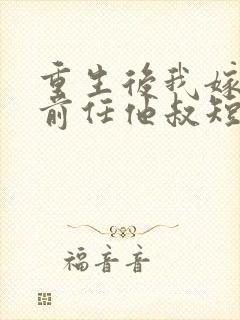 重生後我嫁
前任他叔短
福音音